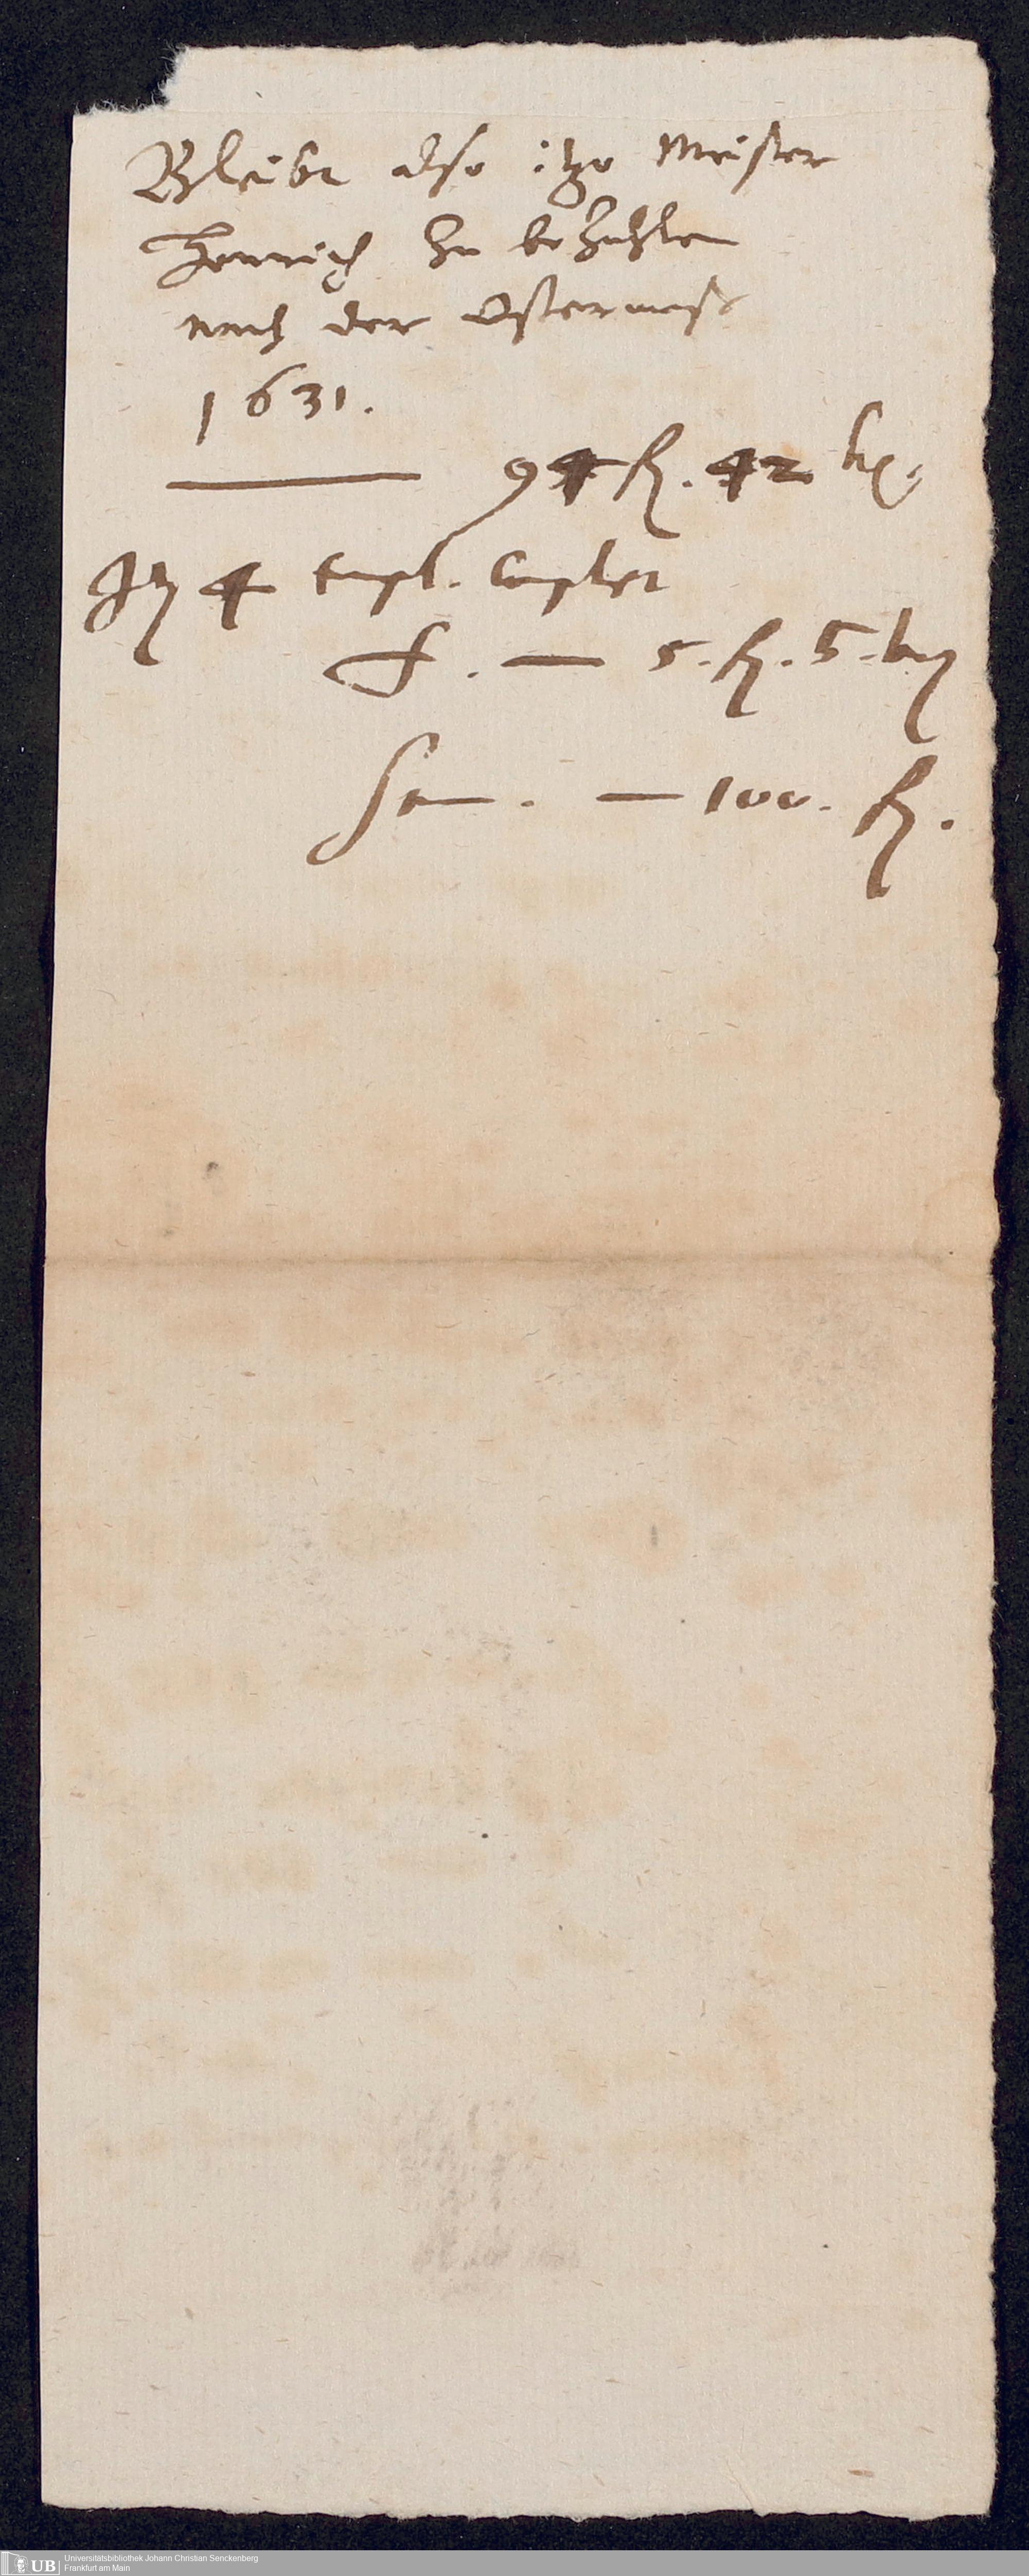 Bleibt also itzo Meister
Henrich zu bezahlen
nach der Ostermess
1631.
94 fl. 42
It 4 Expl.
f. — 5. fl. 5.
Sum. — 100. fl.
UB Universitätsbibliothek Johann Christian Senckenberg
Frankfurt am Main